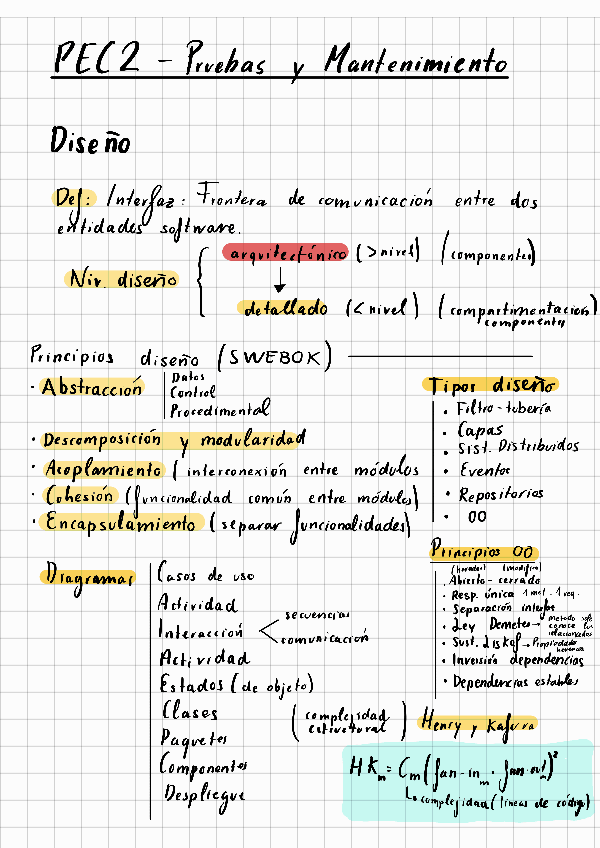 PEC2 - Pruebas y Mantenimiento
Diseño
Def: Interfaz: Frontera de comunicación entre dos
entidades software.
Niv. diseño
arquitectónico (> nivel) (componentes)
detallado (< nivel) (compartimentación
components
Principios diseño (SWEBOK)
· Abstracción
Datos
Control
Procedimental
· Descomposición y modularidad
· Acoplamiento (interconexión entre módulos
· Cohesión (funcionalidad común entre módulos)
· Encapsulamiento (separar funcionalidades)
Tipos diseño
· Filtro-tubería
· Capas
· Sist. Distribuidos
· Eventos
· Repositorios
· OO
Principios OO
(heredar) (modificar)
· Abierto-cerrado
· Resp. única 1 mot. 1 req.
· Separación interfas
· Ley Demeter → metodo solo
conoce los
relacionados
· Sust. Liskof → Propiedades
herencia
· Inversión dependencias
· Dependencias estables
Diagramas
Casos de uso
Actividad
Interacción
secuencias
comunicación
Actividad
Estados (de objeto)
Clases
Paquetes
Componentes
Despliegue
(complejidad
estructural)
Henry y Kafura
HKm = Cm(fan-inm · fan-outm)²
↳ complejidad (líneas de código)